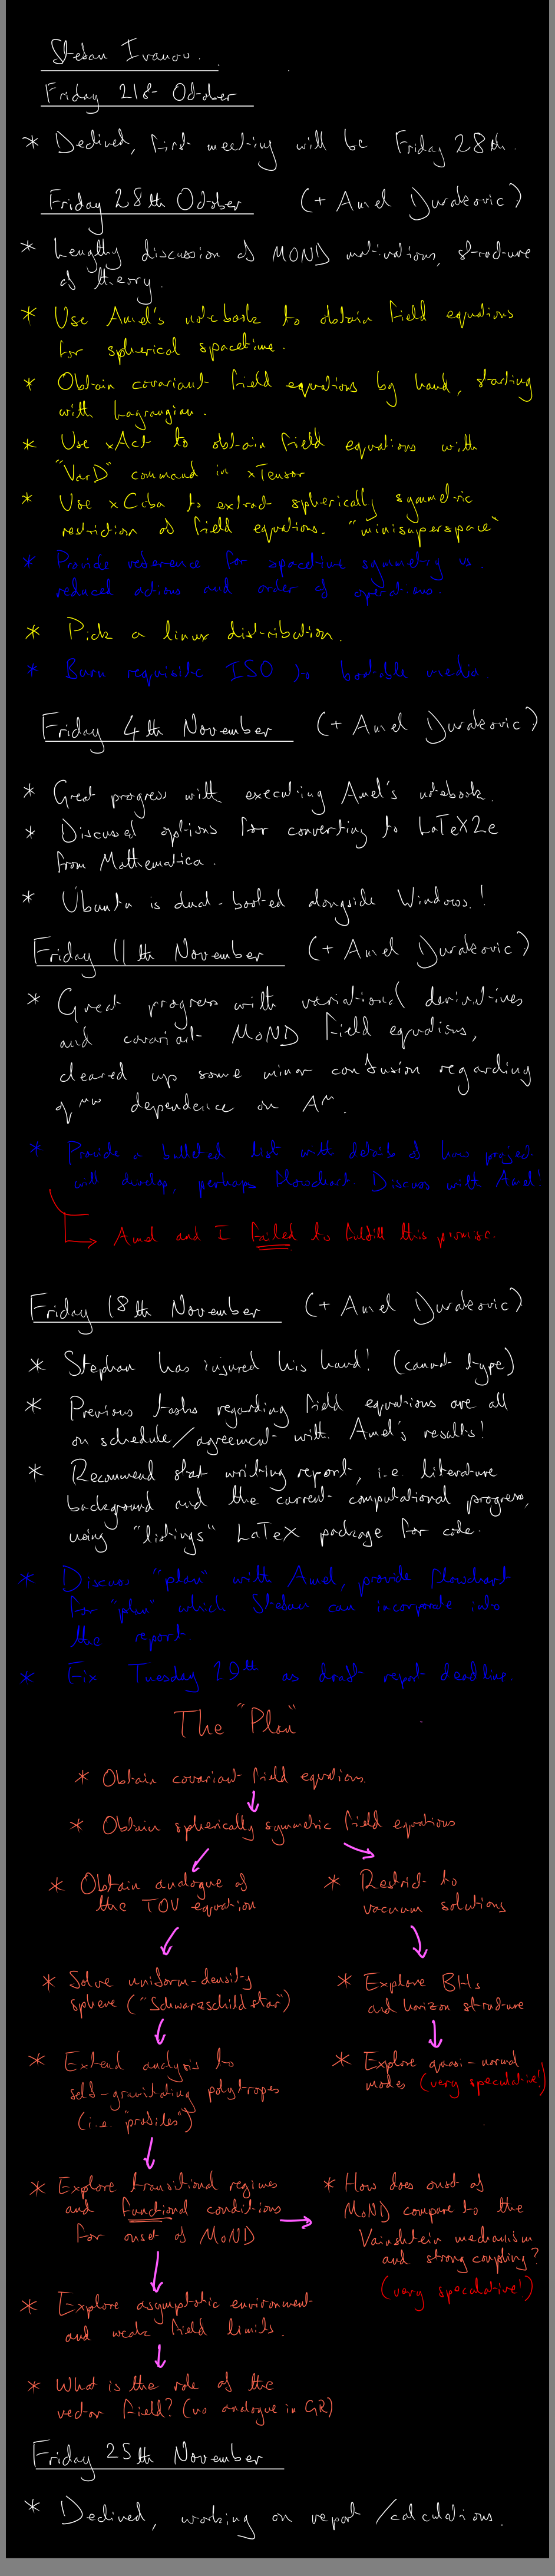 Stefan Ivanov.
Friday 21st October
* Declined, first meeting will be Friday 28th.
Friday 28th October (+ Amel Durakovic)
* Lengthy discussion of MOND motivations, structure
of theory.
* Use Amel's notebook to obtain field equations
for spherical spacetime.
* Obtain covariant field equations by hand, starting
with Lagrangian.
* Use xAct to obtain field equations with
"VarD" command in xTensor
* Use xCoba to extract spherically symmetric
restriction of field equations. "minisuperspace"
* Provide reference for spacetime symmetry vs.
reduced actions and order of operations.
* Pick a linux distribution.
* Burn requisite ISO to bootable media
Friday 4th November (+ Amel Durakovic)
* Great progress with executing Amel's notebook.
* Discussed options for converting to LaTeX2e
from Mathematica.
* Ubuntu is dual-booted alongside Windows!
Friday 11th November (+ Amel Durakovic)
* Great progress with variational derivatives
and covariant MoND field equations,
cleared up some minor confusion regarding
q^μν dependence on A^μ.
* Provide a bulleted list with details of how project
will develop, perhaps flowchart Discuss with Amel!
Amel and I failed to fulfill this promise.
Friday 18th November (+ Amel Durakovic)
* Stephan has injured his hand! (cannot type)
* Previous tasks regarding field equations are all
on schedule/agreement with Amel's results!
* Recommend start writing report, i.e. literature
background and the current computational progress,
using "listings" LaTeX package for code.
* Discuss "plan" with Amel, provide flowchart
for "plan" which Stefan can incorporate into
the report
* Fix Tuesday 29th as draft report deadline
The "Plan"
* Obtain covariant field equations.
* Obtain spherically symmetric field equations
* Obtain analogue of
the TOV equation
* Restrict to
vacuum solutions
* Solve uniform-density
sphere ("Schwarzschild star")
* Explore BHs
and horizon structure
* Extend analysis to
self-gravitating polytropes
(i.e. "profiles")
* Explore quasi-normal
modes (very speculative!)
* Explore transitional regimes
and functional conditions
for onset of MoND
* How does onset of
MoND compare to the
Vainshtein mechanism
and strong coupling?
(very speculative!)
* Explore asymptotic environment
and weak field limits.
* What is the role of the
vector field? (no analogue in GR)
Friday 25th November
* Declined, working on report/calculations.